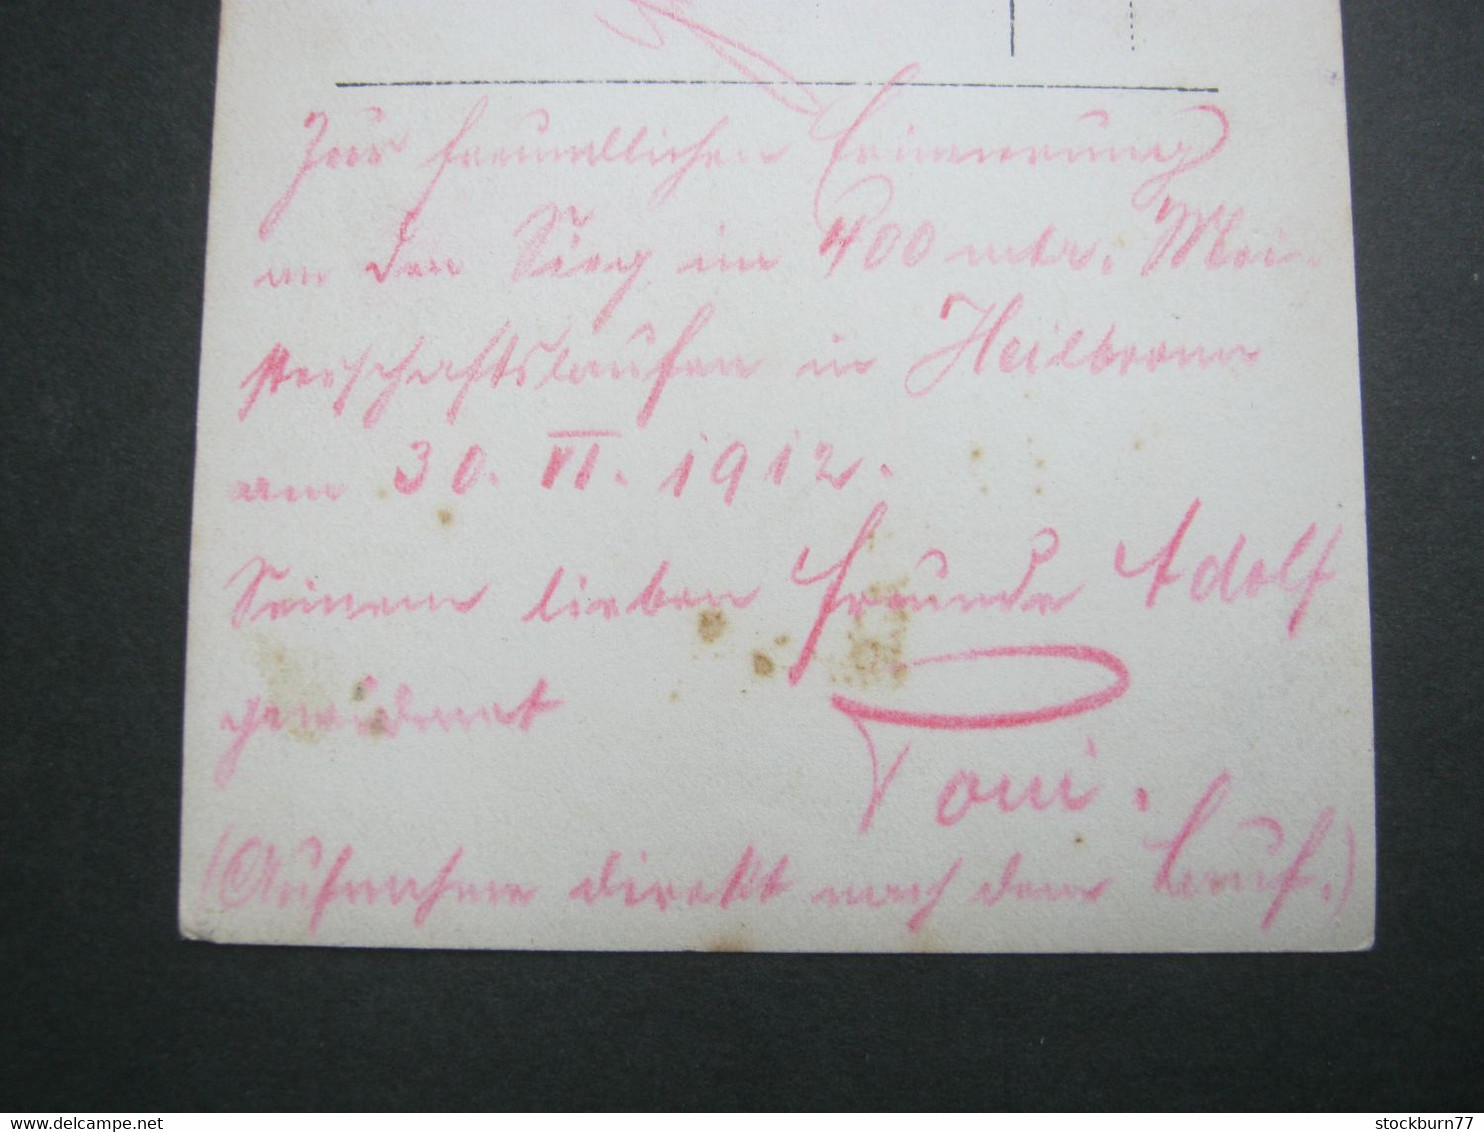 Zur freundlichen Erinnerung
an den Sieg im 400 mtr. Mei-
sterschaftslaufen in Heilbronn
am 30. VI. 1912.
Seinem lieben Freunde Adolf
gewidmet
Toni.
(Aufnahme direkt nach dem Lauf.)
stockburn77